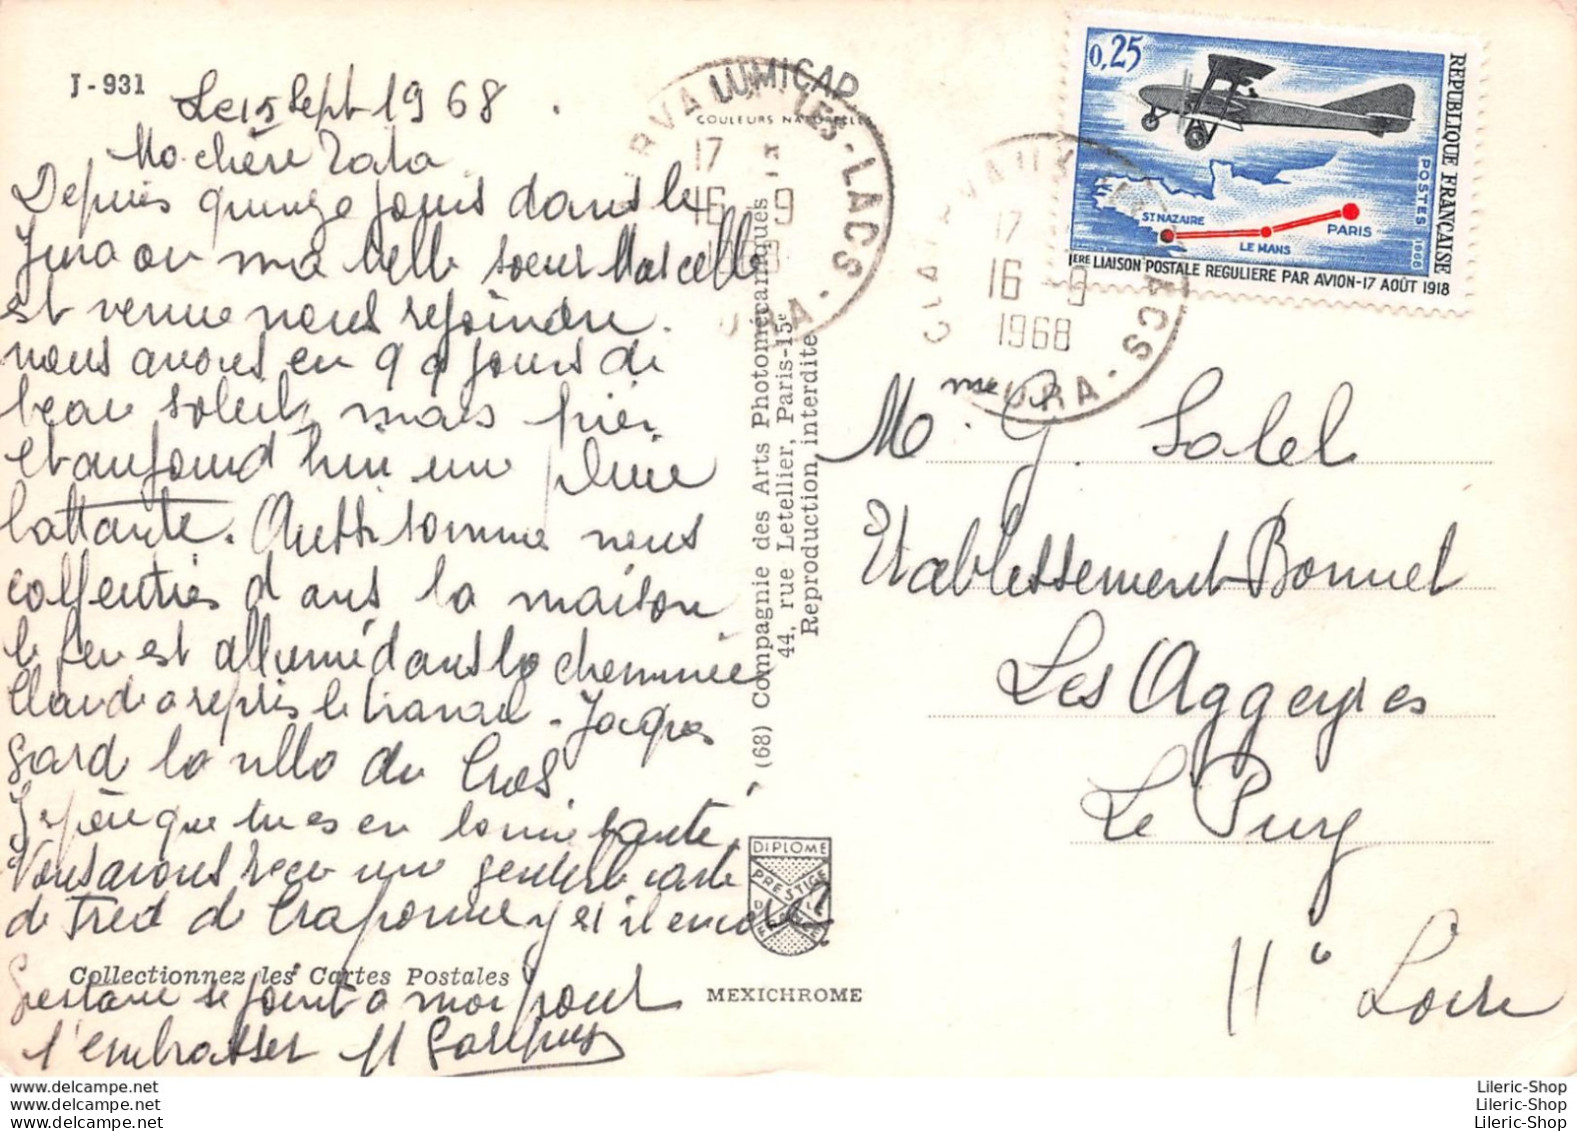 J-931
Le 15 Sept 1968.
LUMICAP
COULEURS NATURELLES
Ma chère Tata
Depuis quinze jours dans le
Jura ou ma belle soeur Marcelle
est venue nous rejoindre.
nous avons eu qq jours de
beau soleil, mais hier
et aujourd'hui une pluie
battante. Aussi sommes nous
calfeutrés dans la maison
le feu est allumé dans la cheminée
Claude a repris le travail - Jacques
gard la villa du Cros.
J'espère que tu es en bonne santé.
Nous avons reçu une gentille carte
de Fred de Craponne y est il encore?
Collectionnez les Cartes Postales
Gaetane se joint a moi pour
t'embrasser
(68) Compagnie des Arts Photomécaniques
44, rue Letellier, Paris-15e
Reproduction interdite
DIPLOME
PRESTIGE
DE
FRANCE
MEXICHROME
CLAIRVAUX-LES-LACS
17 H
16-9
1968
JURA
CLAIRVAUX-LES-LACS
17 H
16-9
1968
JURA
0,25
REPUBLIQUE FRANÇAISE
POSTES 1968
ST NAZAIRE
LE MANS
PARIS
1ERE LIAISON POSTALE REGULIERE PAR AVION-17 AOÛT 1918
Mme G
M. G. Salel
Etablissement Bonnet
Les Aggeyres
Le Puy
Hte Loire
www.delcampe.net
www.delcampe.net
www.delcampe.net
Lileric-Shop
Lileric-Shop
Lileric-Shop